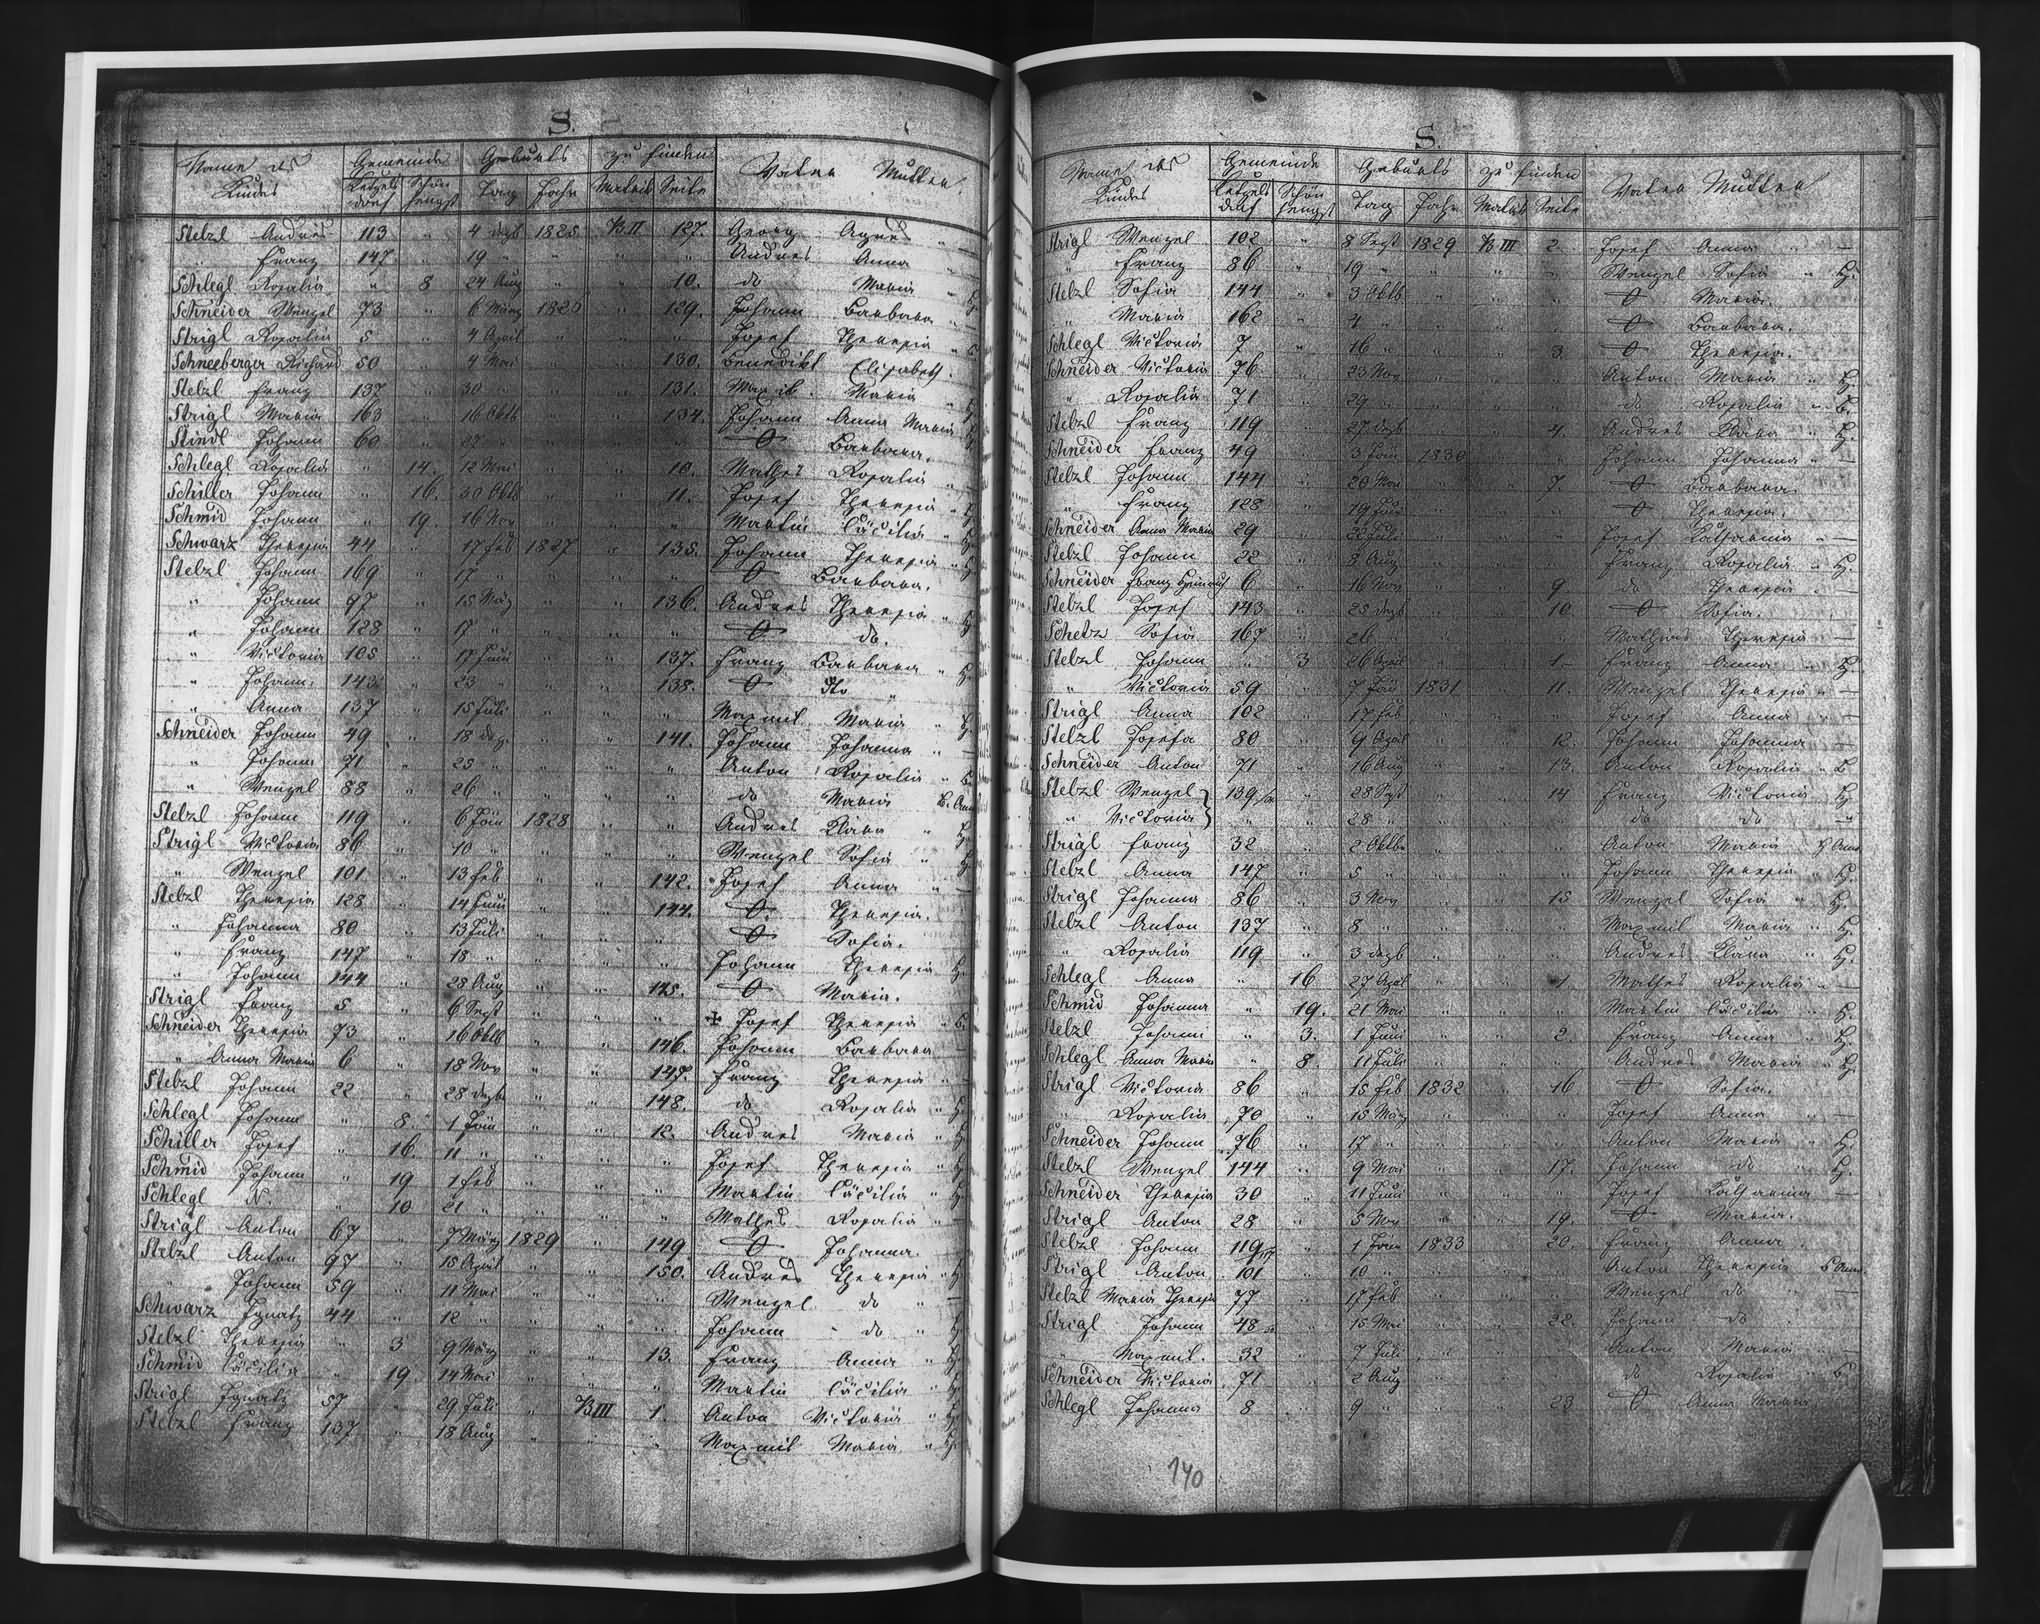 S.
Name des Kindes Gemeinde Geburts zu finden Vater Mutter
Ketzelsdorf Schönhengst Tag Jahr Matrik Seite
Stelzl Andres 113 " 4 Dezb 1825 B II 127. Georg Agnes " —
" Franz 147 " 19 " " " " Andres Anna "
Schlegl Rosalia " 8 24 Aug " " 10. do Maria " H.
Schneider Wenzel 73 " 6 März 1826 " 129. Johann Barbara "
Strigl Rosalia 5 " 4 April " " " Josef Theresia "
Schneeberger Richard 50 " 4 Mai " " 130. Benedikt Elisabeth.
Stelzl Franz 137 " 30 " " " 131. Maxib. Maria "
Strigl Maria 163 " 16 Oktb " " 134. Johann Anna Maria
Stindl Johann 60 " 27 " " " " O Barbara.
Schlegl Rosalia " 14. 12 Mai " " 10. Mathes Rosalia "
Schiller Johann " 16. 30 Oktb " " 11. Josef Theresia "
Schmid Johann " 19 16 Nov " " " Martin Cäcilia "
Schwarz Theresia 44 " 17 Feb 1827 " 135. Johann Theresia " H.
Stelzl Johann 169 " 17 " " " " O Barbara.
" Johann 97 " 15 Mäz " " 136. Andres Theresia " H.
" Johann 128 " 17 " " " " O do.
" Victoria 105 " 17 Juni " " 137. Franz Barbara " H.
" Johann. 143 " 23 " " " 138. O dto "
" Anna 137 " 15 Juli " " " Maxmil Maria " H.
Schneider Johann 49 " 18 dez. " " 141. Johann Johanna " —
" Johann 71 " 25 " " " " Anton Rosalia " B.
" Wenzel 88 " 26 " " " " do Maria B. Anna
Stelzl Johann 119 " 6 Jän 1828 " " Andres Klara " H.
Strigl Victoria 86 " 10 " " " " Wenzel Sofia " H.
" Wenzel 101 " 13 Feb " " 142. Josef Anna " —
Stelzl Theresia 128 " 14 Juni " " 144. O Theresia.
" Johanna 80 " 13 Juli " " " O Sofia.
" Franz 147 " 18 " " " " Johann Theresia H.
" Johann 144 " 28 Aug " " 145. O Maria.
Strigl Franz 5 " 6 Sept " " " + Josef Theresia " B.
Schneider Theresia 73 " 16 Oktb " " 146. Johann Barbara —
" Anna Maria 6 " 18 Nov " " 147. Franz Theresia "
Stelzl Johann 22 " 28 dezb " " 148. do Rosalia " H.
Schlegl Johann " 8. 1 Jän " " 12. Andres Maria " H.
Schiller Josef " 16. 11 " " " " Josef Theresia " H.
Schmid Johann " 19 1 Feb " " " Martin Cäcilia " H.
Schlegl N. " 10 21 " " " " Mathes Rosalia " —
Strigl Anton 67 " 7 März 1829 " 149. O Johanna.
Stelzl Anton 97 " 15 April " " 150. Andres Theresia " H.
" Johann 59 " 11 Mai " " " Wenzel do " —
Schwarz Ignatz 44 " 12 " " " " Johann do " H.
Stelzl Theresia " 3 9 März " " 13. Franz Anna " H.
Schmid Cäcilia " 19 14 Mai " " " Martin Cäcilia " H.
Strigl Ignatz 57 " 29 Juli " B III 1. Anton Victoria " H.
Stelzl Franz 137 " 18 Aug " " " Maxmil Maria " H.
S.
Name des Kindes Gemeinde Geburts zu finden Vater Mutter
Ketzelsdorf Schönhengst Tag Jahr Matrik Seite
Strigl Wenzel 102 " 8 Sept 1829 B III 2. Josef Anna " —
" Franz 86 " 19 " " " " Wenzel Sofia " H.
Stelzl Sofia 144 " 3 Oktb " " " O Maria.
" Maria 162 " 4 " " " " O Barbara.
Schlegl Victoria 7 " 16 " " " 3. O Theresia.
Schneider Victoria 76 " 23 Nov " " " Anton Maria " H.
" Rosalia 71 " 29 " " " " do Rosalia " B.
Stelzl Franz 119 " 27 dezb " " 4. Andres Klara " H.
Schneider Franz 49 " 3 Jän 1830 " " Johann Johanna " —
Stelzl Johann 144 " 20 Mai " " 7. O Barbara.
" Franz 128 " 19 Juni " " " O Theresia.
Schneider Anna Maria 29 " 22 Juli " " " Josef Katharina " —
Stelzl Johann 22 " 8 Aug " " " Franz Rosalia " H.
Schneider Franz Heinrich 6 " 16 Nov " " 9. do Theresia " —
Stelzl Josef 143 " 25 dezb " " 10. O Sofia.
Schetz Sofia 167 " 26 " " " " Mathias Theresia —
Stelzl Johann " 3 26 April " " 1. Franz Anna " H.
" Victoria 59 " 7 Jän 1831 " 11. Wenzel Theresia " —
Strigl Anna 102 " 17 Feb " " " Josef Anna " —
Stelzl Josefa 80 " 9 April " " 12. Johann Johanna —
Schneider Anton 71 " 16 Aug " " 13. Anton Rosalia " B
Stelzl Wenzel } 139 " 28 Sept " " 14 Franz Victoria H.
" Victoria } " " 28 " " " " do do "
Strigl Franz 32 " 2 Oktb " " " Anton Maria H Anna
Stelzl Anna 147 " 5 " " " " Johann Theresia " H.
Strigl Johanna 86 " 3 Nov " " 15 Wenzel Sofia " H.
Stelzl Anton 137 " 8 " " " " Maxmil Maria " H.
" Rosalia 119 " 3 dezb " " " Andres Klara " H.
Schlegl Anna " 16 27 April " " 1 Mathes Rosalia " —
Schmid Johanna " 19. 21 Mai " " " Martin Cäcilia " H.
Stelzl Johann " 3. 1 Juni " " 2. Franz Anna " H.
Schlegl Anna Maria " 8. 11 Juli " " " Andres Maria " H.
Strigl Victoria 86 " 15 Feb 1832 " 16 O Sofia.
" Rosalia 70 " 15 März " " " Josef Anna " —
Schneider Johann 76 " 17 " " " " Anton Maria " H.
Stelzl Wenzel 144 " 9 Mai " " 17. Johann do " H.
Schneider Theresia 30 " 11 Juni " " " Josef Katharina —
Strigl Anton 28 " 5 Nov " " 19. O Maria.
Stelzl Johann 119 " 1 Jän 1833 " 20. Franz Anna
Strigl Anton 101 " 10 " " " " Anton Theresia B Anna
Stelzl Maria Theresia 77 " 17 Feb " " " Wenzel do " —
Strigl Johann 48 " 15 Mai " " 22. Johann do "
" Maxmil. 32 " 7 Juli " " " Anton Maria " —
Schneider Victoria 71 " 2 Aug " " " do Rosalia " B
Schlegl Johanna 8 " 9 " " " 23 O Anna Maria
140